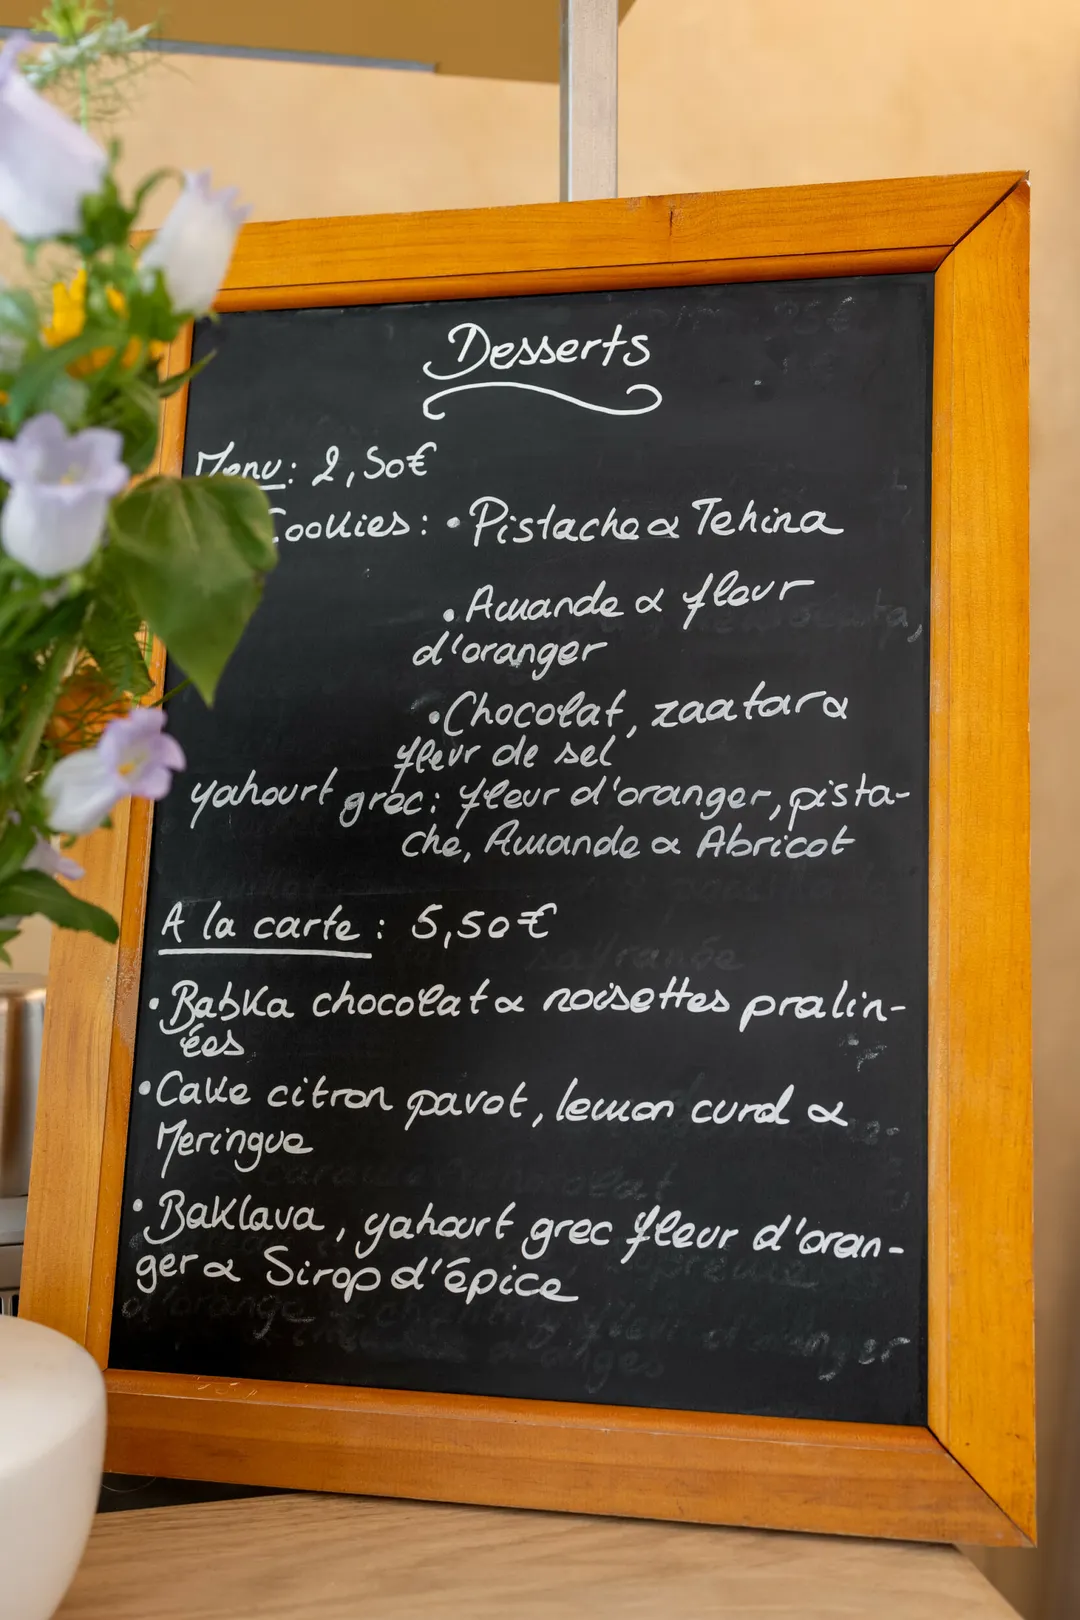 Desserts
Menu: 2,50€
Cookies: • Pistache & Tehina
• Amande & fleur
d'oranger
• Chocolat, zaatar &
fleur de sel
yahourt grec: fleur d'oranger, pista-
che, Amande & Abricot
A la carte: 5,50€
• Babka chocolat & noisettes pralin-
ées
• Cake citron pavot, lemon curd &
Meringue
• Baklava, yahourt grec fleur d'oran-
ger & Sirop d'épice